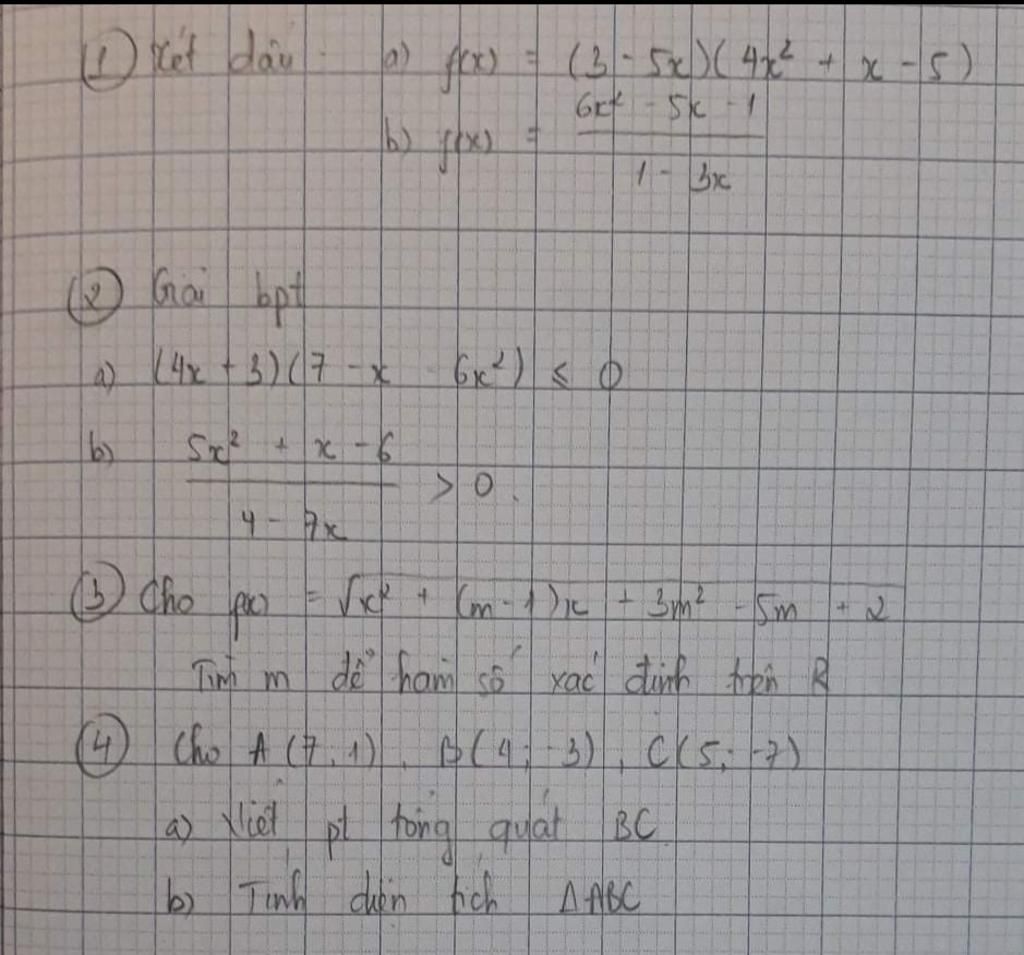 ① Xét dấu a) f(x) = (3 - 5x)(4x² + x - 5)
b) f(x) = \frac{6x² - 5x - 1}{1 - 3x}
② Giải bpt
a) (4x + 3)(7 - x - 6x²) ≤ 0
b) \frac{5x² + x - 6}{4 - 7x} > 0.
③ Cho f(x) = √(x² + (m - 1)x + 3m² - 5m + 2)
Tìm m để hàm số xác định trên R
④ Cho A(7; 1), B(4; -3), C(5; -7)
a) Viết pt tổng quát BC
b) Tính diện tích ΔABC